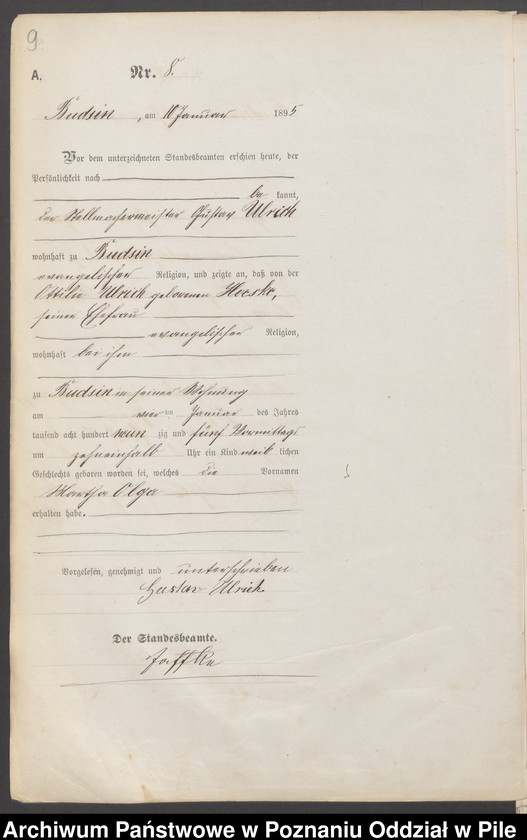 9
A.
Nr. 8.
Budsin, am 10 Januar 1895
Vor dem unterzeichneten Standesbeamten erschien heute, der
Persönlichkeit nach
be kannt,
der Stellmachermeister Gustav Ulrich
wohnhaft zu Budsin
evangelischer Religion, und zeigte an, daß von der
Ottilie Ulrich geborenen
seiner Ehefrau
evangelischer Religion,
wohnhaft bei ihm
zu Budsin in seiner Wohnung
am ten Januar des Jahres
tausend acht hundert neun zig und fünf Vormittags
um zehneinhalb Uhr ein Kind weib lichen
Geschlechts geboren worden sei, welches die Vornamen
Martha Olga
erhalten habe.
Vorgelesen, genehmigt und unterschrieben
Gustav Ulrich
Der Standesbeamte.
Jaffke
Archiwum Państwowe w Poznaniu Oddział w Pile